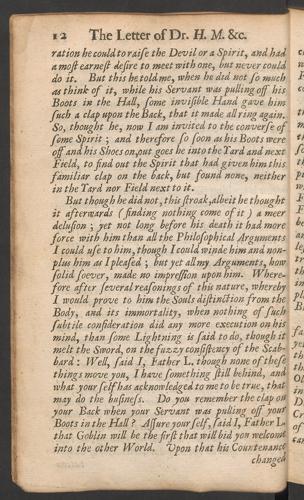 12 The Letter of Dr. H. M. &c.
ration he could to raise the Devil or a Spirit, and had
a most earnest desire to meet with one, but never could
do it. But this he told me, when he did not so much
as think of it, while his Servant was pulling off his
Boots in the Hall, some invisible Hand gave him
such a clap upon the Back, that it made all ring again.
So, thought he, now I am invited to the converse of
some Spirit; and therefore so soon as his Boots were
off and his Shoes on, out goes he into the Yard and next
Field, to find out the Spirit that had given him this
familiar clap on the back, but found none, neither
in the Yard nor Field next to it.
But though he did not, this stroak, albeit he thought
it afterwards (finding nothing come of it) a meer
delusion; yet not long before his death it had more
force with him than all the Philosophical Arguments
I could use to him, though I could winde him and non-
plus him as I pleased; but yet all my Arguments, how
solid soever, made no impression upon him. Where-
fore after several reasonings of this nature, whereby
I would prove to him the Souls distinction from the
Body, and its immortality, when nothing of such
subtile consideration did any more execution on his
mind, than some Lightning is said to do, though it
melt the Sword, on the fuzzy consistency of the Scab-
bard: Well, said I, Father L. though none of these
things move you, I have something still behind, and
what your self has acknowledged to me to be true, that
may do the business. Do you remember the clap on
your Back when your Servant was pulling off your
Boots in the Hall? Assure your self, said I, Father L.
that Goblin will be the first that will bid you welcome
into the other World. Upon that his Countenance
changed